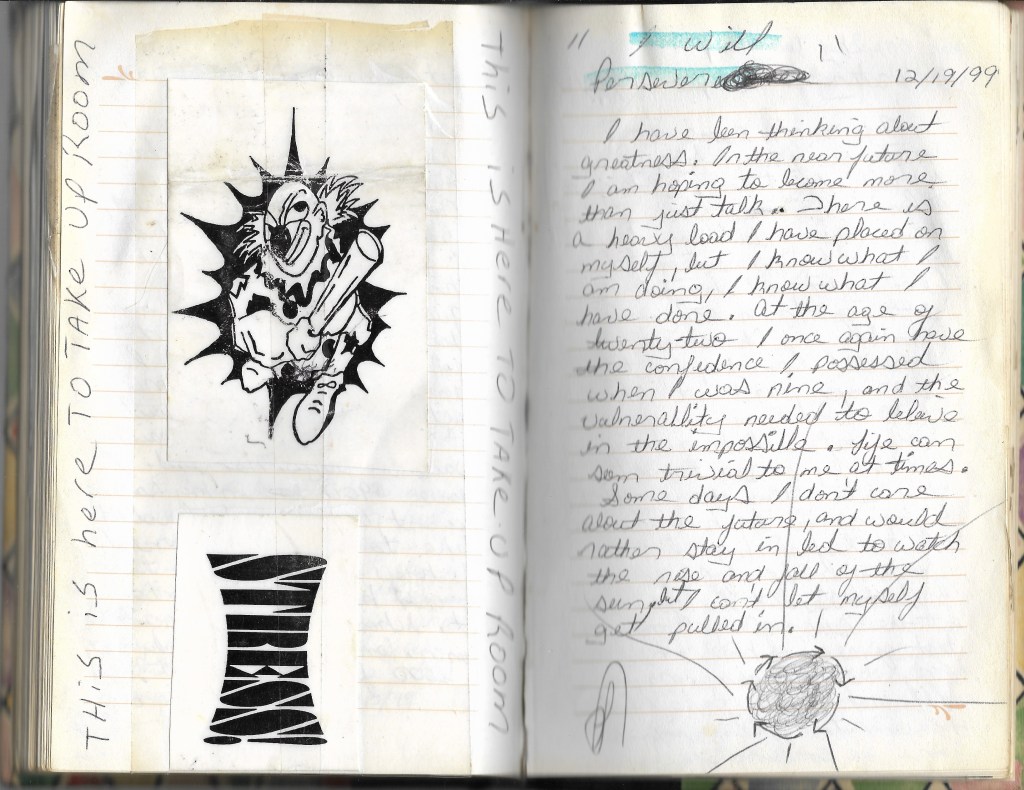 THIS is here TO TAKE UP ROOM
STRESS!
THIS IS HERE TO TAKE UP ROOM
" I will
Persevere "
12/19/99
I have been thinking about
greatness. In the near future
I am hoping to become more
than just talk. There is
a heavy load I have placed on
myself, but I know what I
am doing, I know what I
have done. At the age of
twenty-two I once again have
the confidence I possessed
when I was nine, and the
vulnerability needed to believe
in the impossible. Life can
seem trivial to me at times.
Some days I don't care
about the future, and would
rather stay in bed to watch
the rise and fall of the
sun, but I can't let myself
get pulled in.